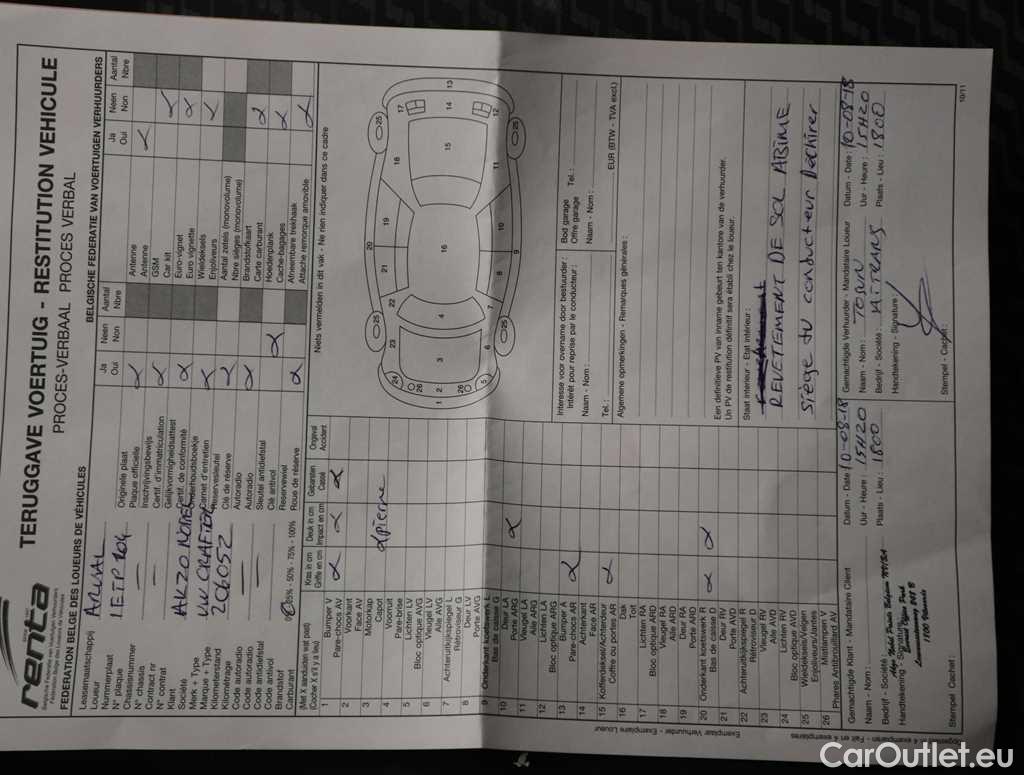 renta
Belgische Federatie van Voertuigenverhuurders
Fédération Belge des Loueurs de Véhicules
TERUGGAVE VOERTUIG - RESTITUTION VEHICULE
PROCES-VERBAAL PROCES VERBAL
FEDERATION BELGE DES LOUEURS DE VÉHICULES
BELGISCHE FEDERATIE VAN VOERTUIGEN VERHUURDERS
Leasemaatschappij
Loueur
ARVAL
Nummerplaat
N° plaque
1EIP104
Chassisnummer
N° chassis
Contract nr
N° contrat
Klant
Société
AKZO NOBEL
Merk + Type
Marque + Type
VW CRAFTER
Kilometerstand
Kilométrage
206052
Code autoradio
Code autoradio
Code antidiefstal
Code antivol
Brandstof
Carburant
25% - 50% - 75% - 100%
Ja Neen Aantal
Oui Non Nbre
Originele plaat
Plaque officielle
Inschrijvingsbewijs
Certif. d'immatriculation
Gelijkvormigheidsattest
Certif. de conformité
Onderhoudsboekje
Carnet d'entretien
Reservesleutel
Clé de réserve
Autoradio
Autoradio
Sleutel antidiefstal
Clé antivol
Reservewiel
Roue de réserve
Ja Neen Aantal
Oui Non Nbre
Antenne
Antenne
GSM
Car kit
Euro-vignet
Euro vignette
Wieldeksels
Enjoliveurs
Aantal zetels (monovolume)
Nbre sièges (monovolume)
Brandstofkaart
Carte carburant
Hoedenplank
Cache-bagages
Afneembare trekhaak
Attache remorque amovible
(Met X aanduiden wat past)
(Cocher X s'il y a lieu)
Kras in cm
Griffe en cm
Deuk in cm
Impact en cm
Gebarsten
Cassé
Ongeval
Accident
1 Bumper V
Pare-chocs AV
2 Voorkant
Face AV
3 Motorkap
Capot
4 Voorruit
Pare-brise
pierre
5 Lichten LV
Bloc optique AVG
6 Vleugel LV
Aile AVG
7 Achteruitkijkspiegel L
Rétroviseur G
8 Deur LV
Porte AVG
9 Onderkant koetswerk L
Bas de caisse G
10 Deur LA
Porte ARG
11 Vleugel LA
Aile ARG
12 Lichten LA
Bloc optique ARG
13 Bumper A
Pare-chocs AR
14 Achterkant
Face AR
15 Kofferdeksel/Achterdeur
Coffre ou portes AR
16 Dak
Toit
17 Lichten RA
Bloc optique ARD
18 Vleugel RA
Aile ARD
19 Deur RA
Porte ARD
20 Onderkant koetswerk R
Bas de caisse D
21 Deur RV
Porte AVD
22 Achteruitkijkspiegel R
Rétroviseur D
23 Vleugel RV
Aile AVD
24 Lichten RV
Bloc optique AVD
25 Wieldeksels/Velgen
Enjoliveurs/Jantes
26 Mistlampen V
Phares Antibrouillard AV
Niets vermelden in dit vak - Ne rien indiquer dans ce cadre
Interesse voor overname door bestuurder :
Intérêt pour reprise par le conducteur :
Naam - Nom :
Tel. :
Bod garage
Offre garage
Tel. :
Naam - Nom :
EUR (BTW - TVA excl.)
Algemene opmerkingen - Remarques générales :
Een definitieve PV van inname gebeurt ten kantore van de verhuurder.
Un PV de restitution définitif sera établi chez le loueur.
Staat interieur - Etat intérieur :
REVETEMENT DE SOL ABIME
siège du conducteur Déchirer
Gemachtigde Klant - Mandataire Client
Naam - Nom :
Bedrijf - Société :
Handtekening - Signature :
Stempel - Cachet :
Datum - Date : 10-08-18
Uur - Heure : 15H20
Plaats - Lieu : 1800
Gemachtigde Verhuurder - Mandataire Loueur
Naam - Nom :
Bedrijf - Société :
Handtekening - Signature :
Stempel - Cachet :
Datum - Date : 10-08-18
Uur - Heure : 15H20
Plaats - Lieu : 1800
Exemplaar Verhuurder - Exemplaire Loueur
10/11
CarOutlet.eu